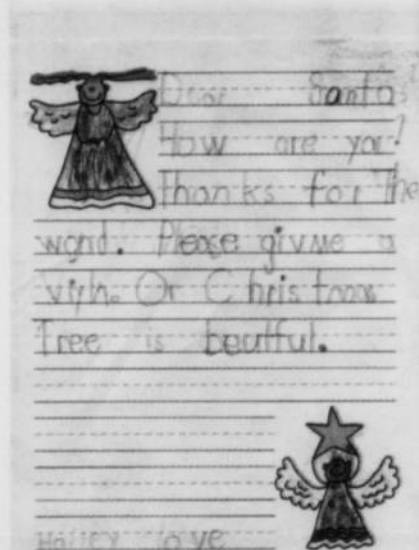 Dear Santa
How are you!
thanks for the
wond. Please givme a
viyh. Or Christmas
Tree is beutful.
Hailey love